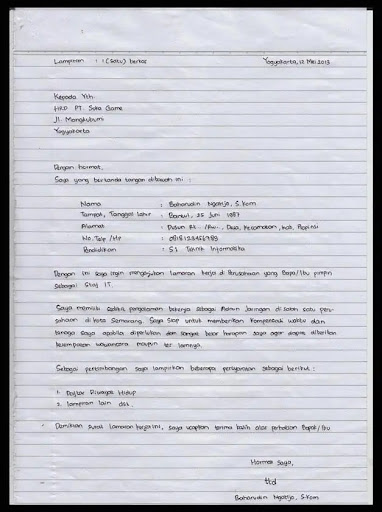 Lampiran : 1 (Satu) berkas
Yogyakarta, 12 Mei 2013
Kepada Yth.
HRD PT. Suta Game
Jl. Mangkubumi
Yogyakarta
Dengan hormat,
Saya yang bertanda tangan dibawah ini :
Nama : Baharudin Ngatijo, S.Kom
Tempat, Tanggal Lahir : Bantul, 25 Juni 1987
Alamat : Dusun Rt.. /Rw.. , Desa, Kecamatan, Kab, Propinsi
No. Telp /Hp : 0818123456789
Pendidikan : S1 Teknik Informatika
Dengan ini saya ingin mengajukan lamaran kerja di Perusahaan yang Bapak/Ibu pimpin
sebagai Staf IT.
Saya memiliki sedikit pengalaman bekerja sebagai Admin Jaringan di salah satu peru-
sahaan di kota Semarang. Saya siap untuk memberikan kompensasi waktu dan
tenaga saya apabila diperlukan dan sangat besar harapan saya agar dapat diberikan
kesempatan wawancara maupun tes lainnya.
Sebagai pertimbangan saya lampirkan beberapa persyaratan sebagai berikut :
1. Daftar Riwayat Hidup
2. Lampiran lain dst.
Demikian surat lamaran kerja ini, saya ucapkan terima kasih atas perhatian Bapak/Ibu
Hormat Saya,
ttd
Baharudin Ngatijo, S.Kom